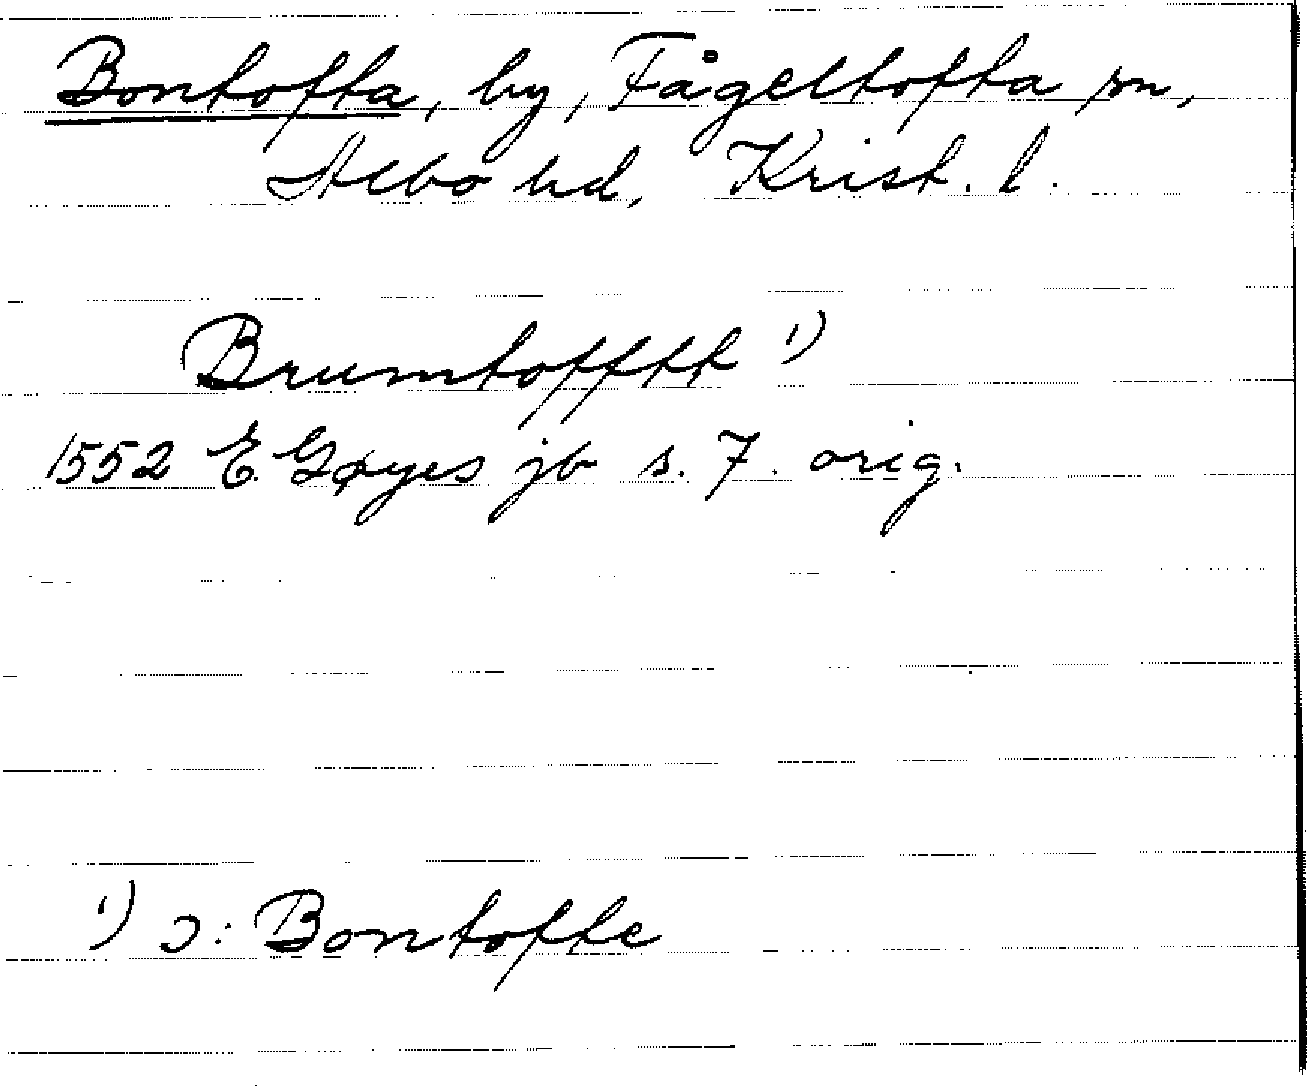 Bontofta, by, Fågeltofta sn,
Albo hd, Krist. l.
Brumtofftt ¹)
1552 E. Gøyes jb s. 7. orig.
¹) ɔ: Bontofte